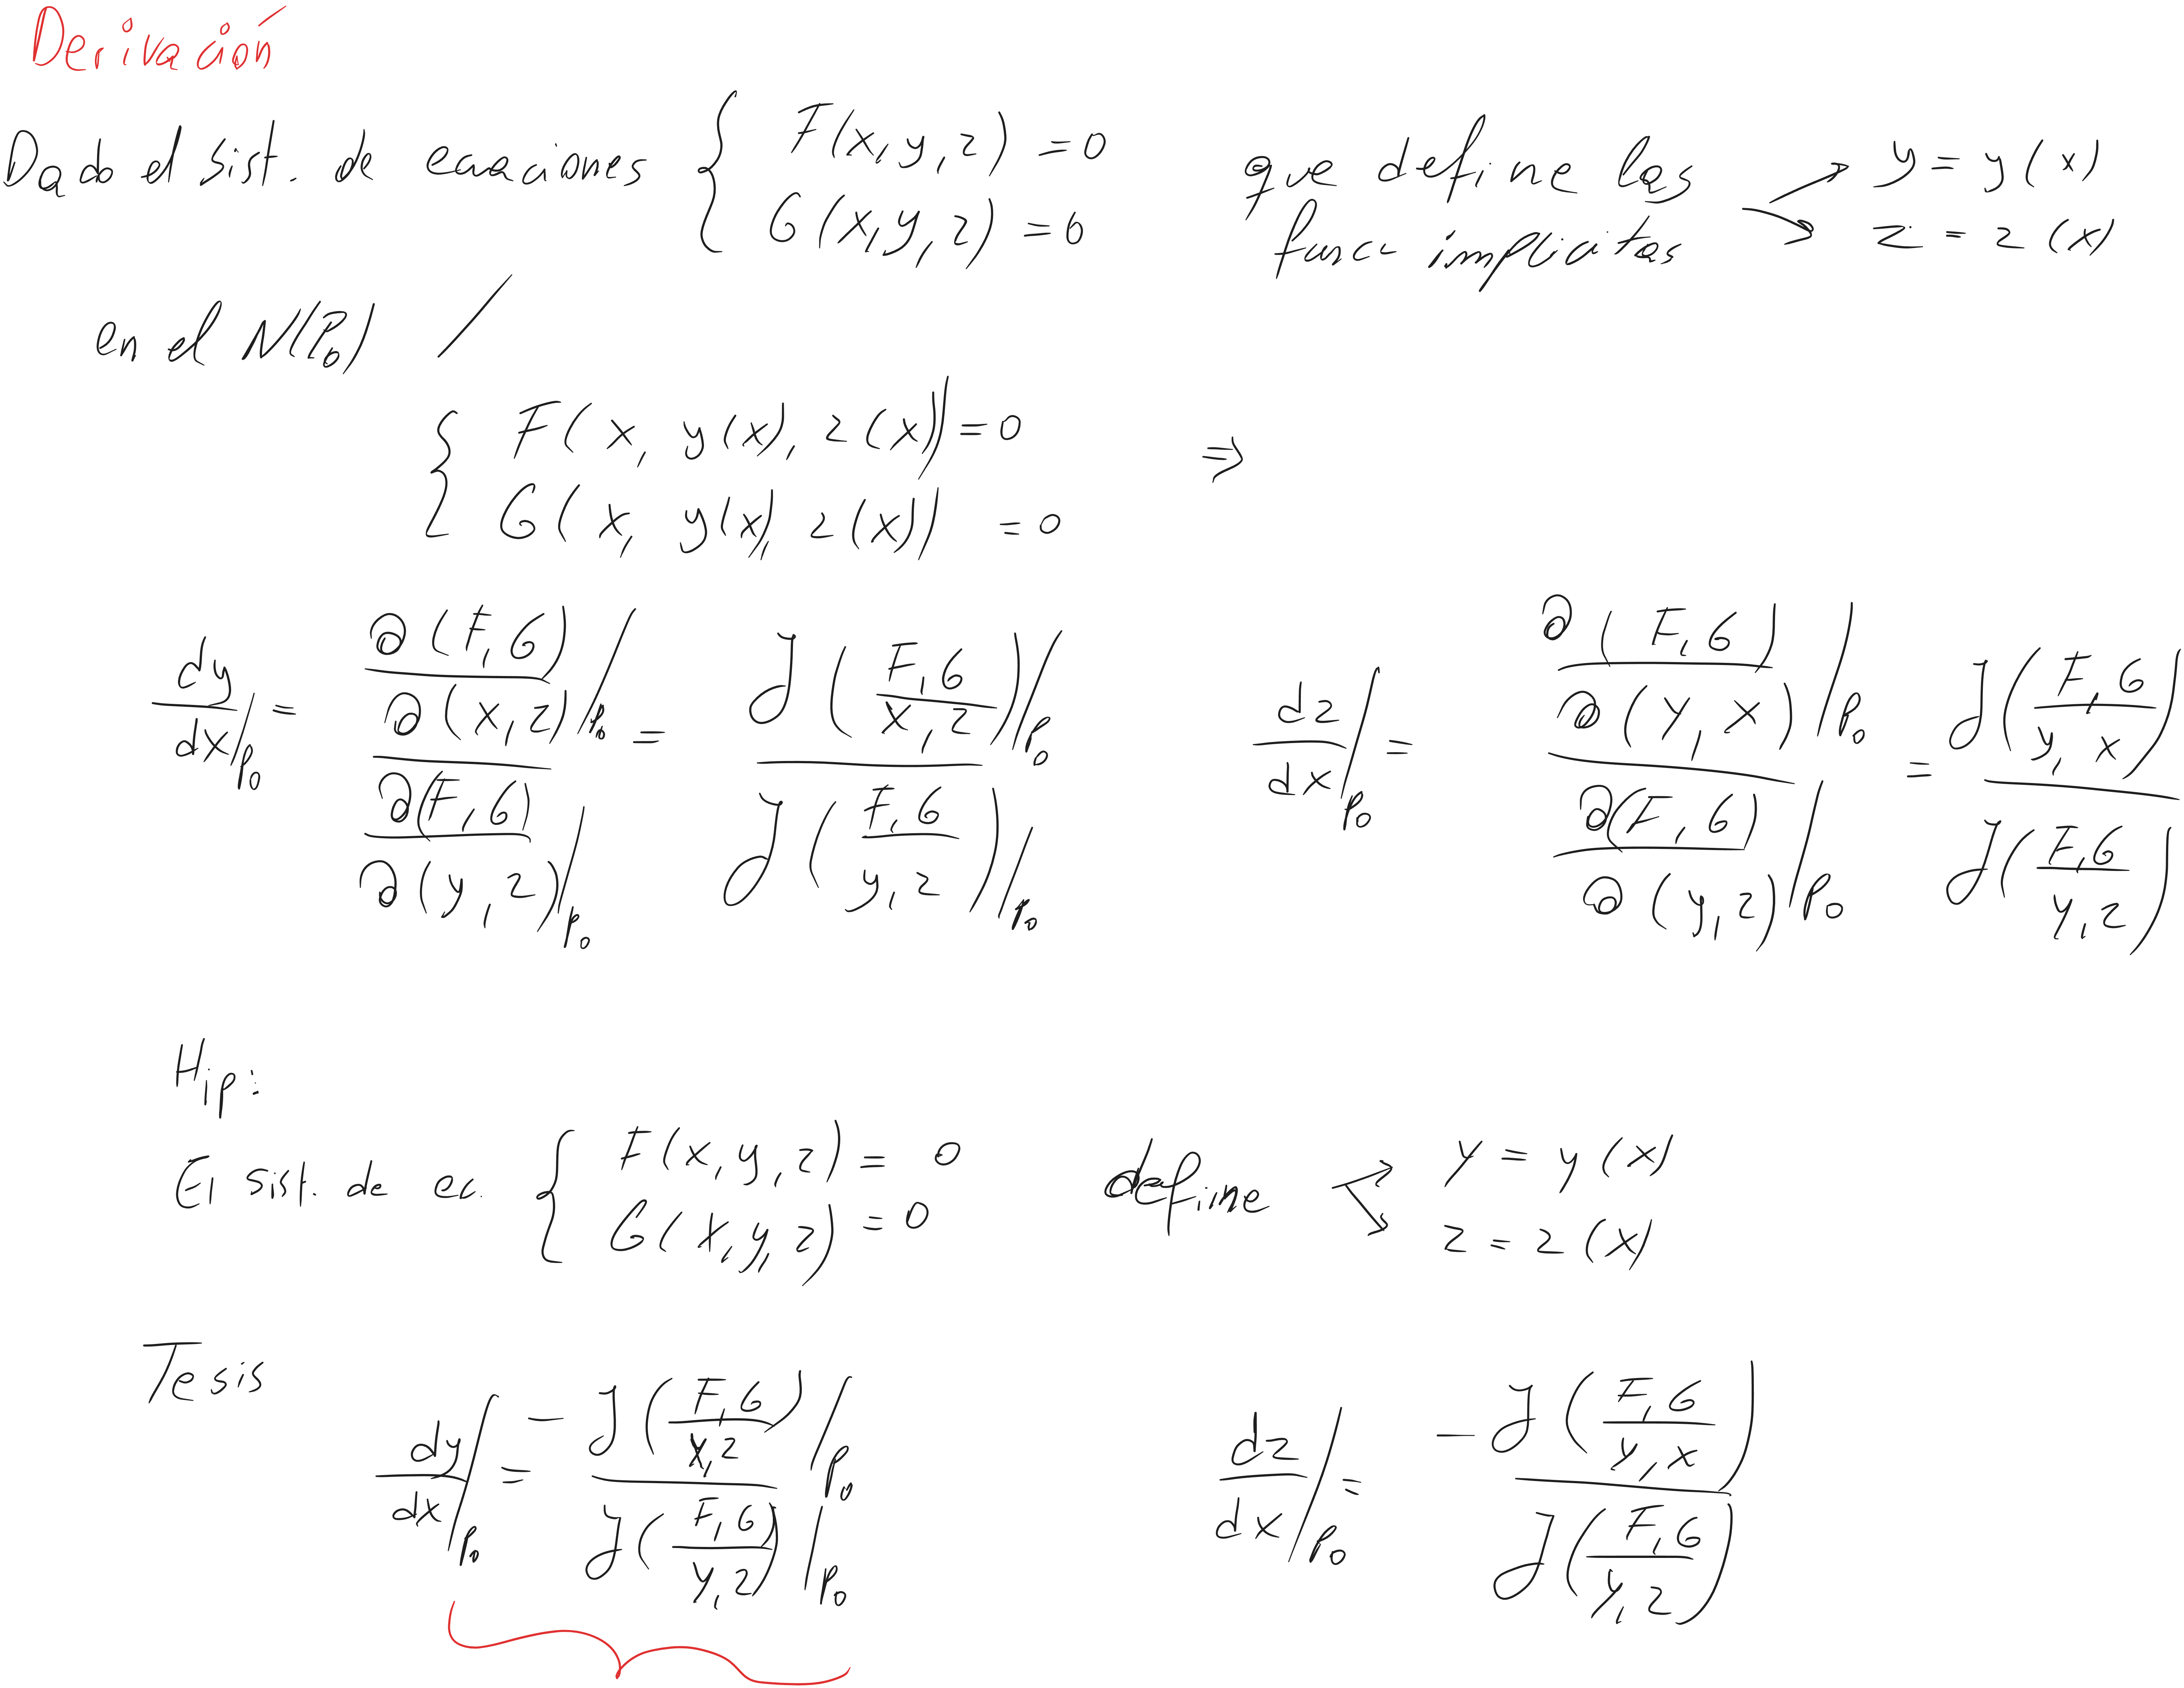 Derivación
Dado el sist. de ecuaciones { F(x,y,z) = 0 que define las y = y(x)
G(x,y,z) = 0 func implicitas z = z(x)
en el N(P0) /
{ F(x, y(x), z(x)) = 0 ⇒
G(x, y(x), z(x)) = 0
dy/dx|P0 = ∂(F,G)/∂(x,z)|P0 / ∂(F,G)/∂(y,z)|P0 = J(F,G/x,z)|P0 / J(F,G/y,z)|P0 dz/dx|P0 = ∂(F,G)/∂(y,x)|P0 / ∂(F,G)/∂(y,z)|P0 = J(F,G/y,x) / J(F,G/y,z)
Hip:
El sist. de ec. { F(x,y,z) = 0 define y = y(x)
G(x,y,z) = 0 z = z(x)
Tesis
dy/dx|P0 = - J(F,G/x,z)|P0 / J(F,G/y,z)|P0 dz/dx|P0 = - J(F,G/y,x) / J(F,G/y,z)